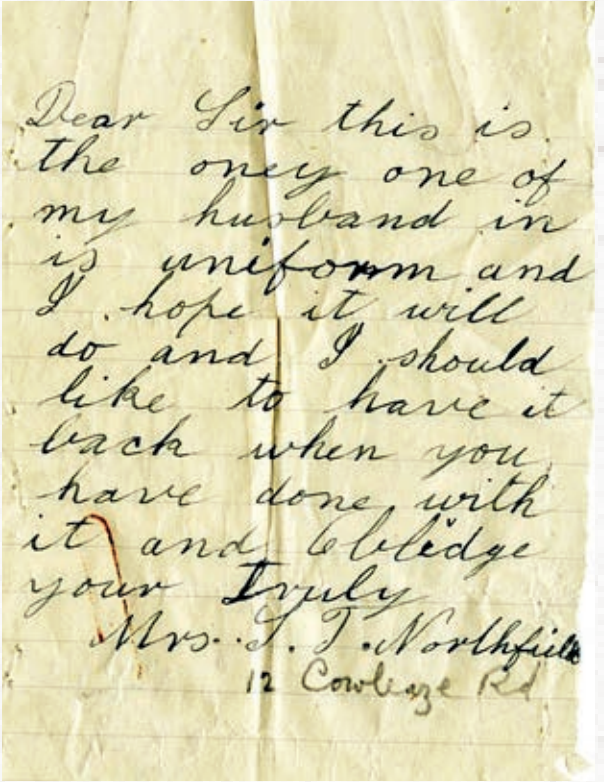 Dear Sir this is
the oney one of
my husband in
is uniform and
I hope it will
do and I should
like to have it
back when you
have done with
it and Oblidge
your Truly
Mrs. S. T. Northfield
12 Cowleaze Rd